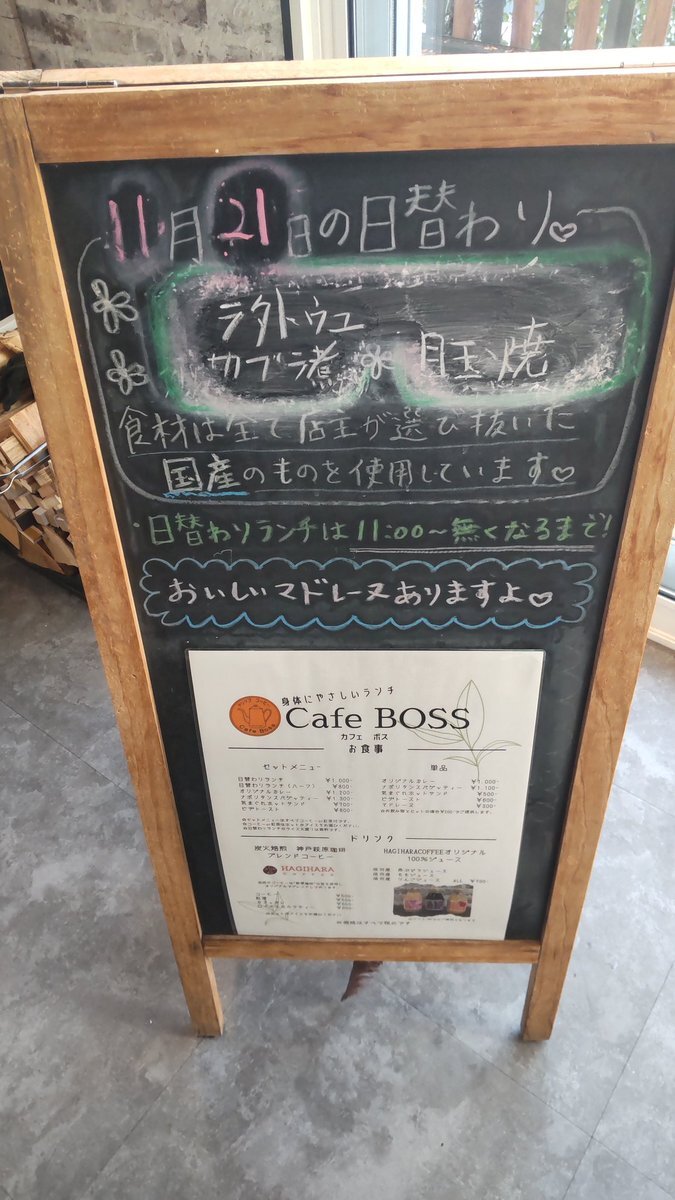 11月21日の日替わり♡
ラタトゥユ
カブラ煮 目玉焼
食材は全て店主が選び抜いた
国産のものを使用しています♡
・日替わりランチは11:00〜無くなるまで!
おいしいマドレーヌありますよ♡
身体にやさしいランチ
Cafe BOSS
カフェ ボス
Cafe Boss
お食事
セットメニュー
日替わりランチ ¥1,000-
日替わりランチ(ハーフ) ¥800-
オリジナルカレー ¥1,200-
ナポリタンスパゲッティー ¥1,300-
気まぐれホットサンド ¥700-
ピザトースト ¥800-
単品
オリジナルカレー ¥1,000-
ナポリタンスパゲッティー ¥1,100-
気まぐれホットサンド ¥500-
ピザトースト ¥600-
マドレーヌ ¥300-
ドリンク
炭火焙煎 神戸萩原珈琲
ブレンドコーヒー
HAGIHARA
COFFEE
コーヒー
紅茶
HAGIHARACOFFEEオリジナル
100%ジュース
ALL ¥700-
※価格はすべて税込です